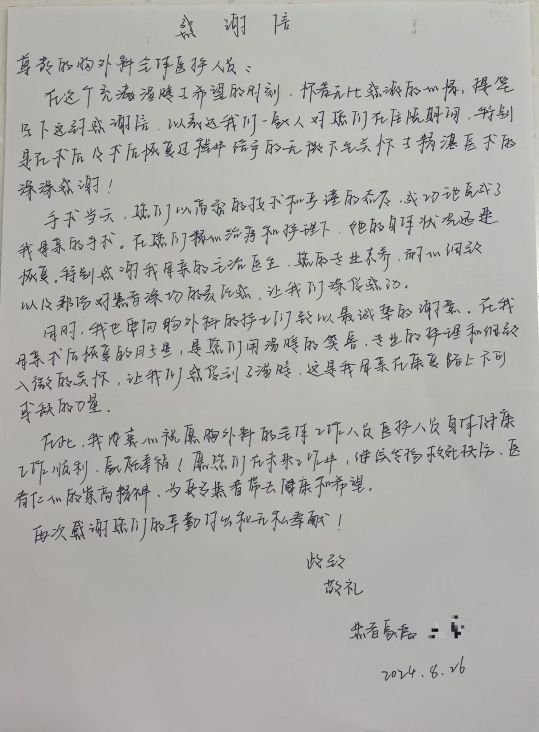 感谢信
尊敬的胸外科全体医护人员：
在这个充满温暖与希望的时刻，怀着无比感激的心情，提笔
写下这封感谢信，以表达我们一家人对您们在住院期间，特别
是在术后及术后恢复过程中给予的无微不至关怀与精湛医术的
深深感谢！
手术当天，您们以高超的技术和严谨的态度，成功地完成了
我母亲的手术。在您们精心治疗和护理下，她的身体状况迅速
恢复。特别感谢我母亲的主治医生，您的专业素养，耐心细致
以及那份对患者深切的责任感，让我们深受感动。
同时，我也要向胸外科的护士们致以最诚挚的谢意。在我
母亲术后恢复的日子里，是您们用温暖的笑容、专业的护理和细致
入微的关怀，让我们感受到了温暖，这是我母亲在康复路上不可
或缺的力量。
在此，我衷心祝愿胸外科的全体工作人员医护人员身体健康
工作顺利、家庭幸福！愿您们在未来工作中，继续发扬救死扶伤、医
者仁心的崇高精神，为更多患者带去健康和希望。
再次感谢您们的辛勤付出和无私奉献！
此致
敬礼
患者家属
2024.8.26